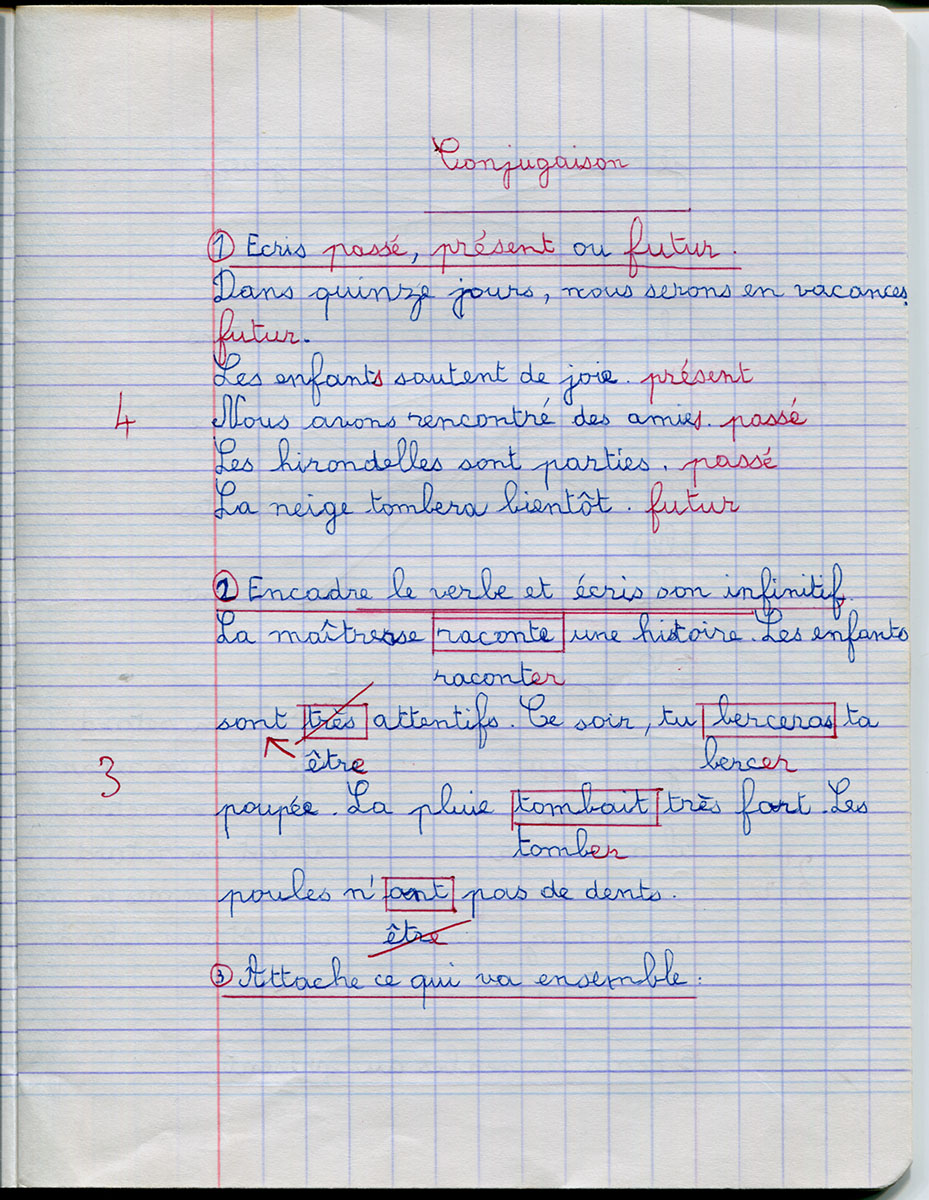 Conjugaison
① Ecris passé, présent ou futur.
Dans quinze jours, nous serons en vacances.
futur.
Les enfants sautent de joie. présent
4
Nous avons rencontré des amies. passé
Les hirondelles sont parties. passé
La neige tombera bientôt. futur
② Encadre le verbe et écris son infinitif.
La maîtresse raconte une histoire. Les enfants
raconter
sont très attentifs. Ce soir, tu berceras ta
être bercer
3
poupée. La pluie tombait très fort. Les
tomber
poules n'ont pas de dents.
être
③ Attache ce qui va ensemble :